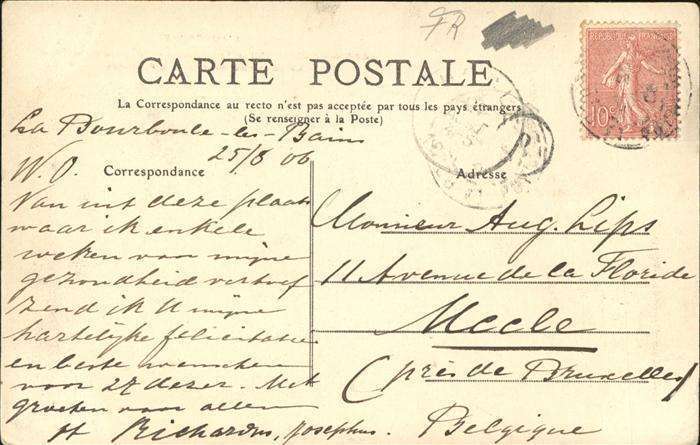 FR
CARTE POSTALE
La Correspondance au recto n'est pas acceptée par tous les pays étrangers
(Se renseigner à la Poste)
REPUBLIQUE FRANÇAISE
10c
La Bourboule-les-Bains
25/8 06
Correspondance
W. O.
Van uit deze plaats
waar ik enkele
weken voor mijne
gezondheid vertoef
zend ik U mijne
hartelijke felicitatie
en beste wenschen
voor 27 dezer. Met
groeten voor allen
Richardus, Josephus.
Adresse
Monsieur Aug. Lips
11 Avenue de la Floride
Uccle
(près de Bruxelles)
Belgique